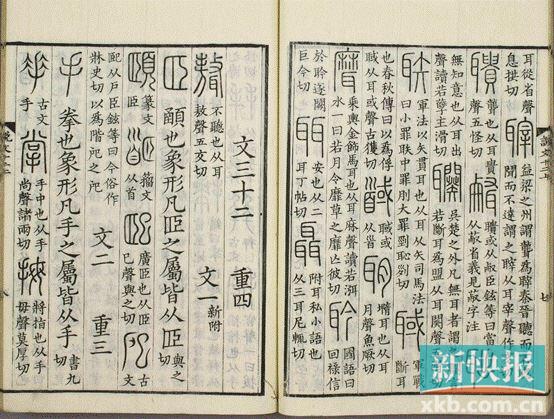 耳從省聲
息拱切
益梁之州謂聾為䏁秦晉聽而不
聞而不達謂之䏁从耳宰聲作
聾也从耳貴
聲五怪切
聵或从𢿌臣鉉等曰當
从蔽省義見蔽字注
無知意也从耳出
聲讀若孼五滑切
吳楚之外凡無耳者謂之
若斷耳為盟从耳闋聲
軍法以矢貫耳也从耳从矢司馬法
曰小罪聅中罪刖大罪剄恥列切
軍戰
斷耳
也春秋傳曰以為俘
聝从耳或聲古獲切
聝或
从首
墮耳也从耳
月聲魚厥切
乘輿金飾馬耳也从耳麻聲讀若渳
水一曰若月令靡草之靡亡彼切
國語曰
回祿信
於聆遂闕
巨今切
安也从二
耳丁帖切
附耳私小語也
从三耳尼輒切
文三十二 重四
不聽也从耳
敖聲五交切
文一 新附
顄也象形凡𦣞之屬皆从𦣞 與之切
篆文
𦣞
籒文
从首
廣𦣞也从𦣞
巳聲與之切
古文
从戶臣鉉等曰今俗作
牀史切以為階
文二 重三
手 拳也象形凡手之屬皆从手 書九切
古文
手
手中也从手
尚聲諸兩切
將指也从手
母聲莫厚切
新快报
xkb.com.cn